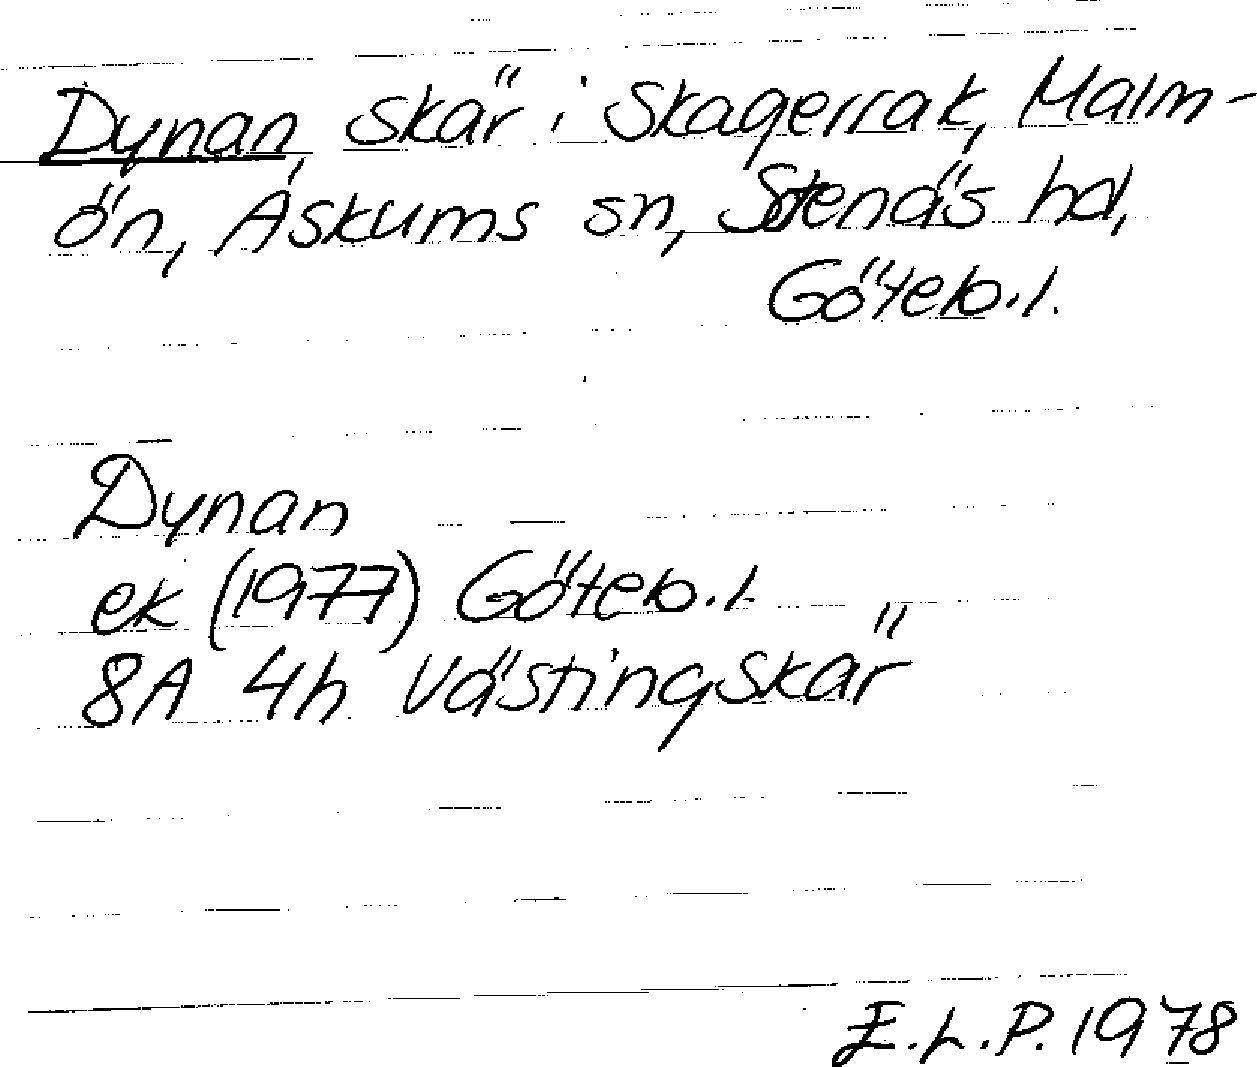 Dynan, skär i Skagerrak, Malm-
ön, Askums sn, Stenäs hd,
Göteb.l.
Dynan
ek (1977) Göteb.l.
8A 4h Västingskär
E.L.P. 1978